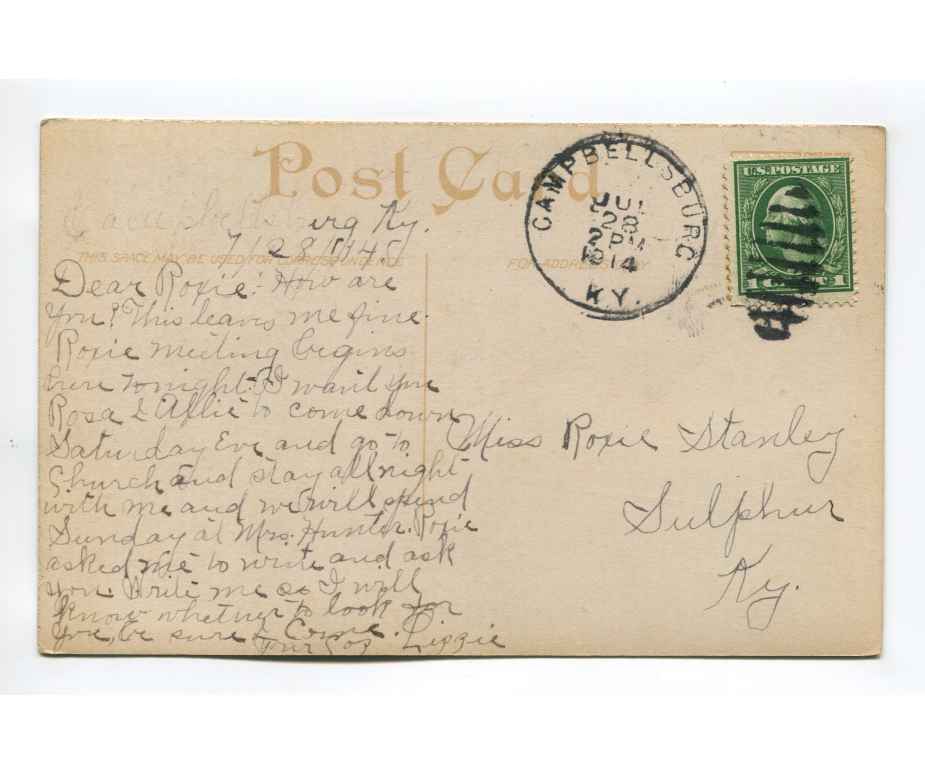 Post Card
CAMPBELLSBURG
JUL
28
2 PM
1914
KY.
U.S. POSTAGE
1 CENT 1
Campbellsburg Ky.
7/28/14
THIS SPACE MAY BE USED FOR CORRESPONDENCE
FOR ADDRESS ONLY
Dear Roxie: How are
you? This leaves me fine.
Roxie meeting begins
here tonight. I want you
Rosa & Allie to come down
Saturday Eve and go to
Church and stay all night
with me and we will spend
Sunday at Mrs. Hunter. Roxie
asked me to write and ask
you. Write me so I will
know whether to look for
you, be sure & Come.
Your Coz Lizzie
Miss Roxie Stanley
Sulphur
Ky.